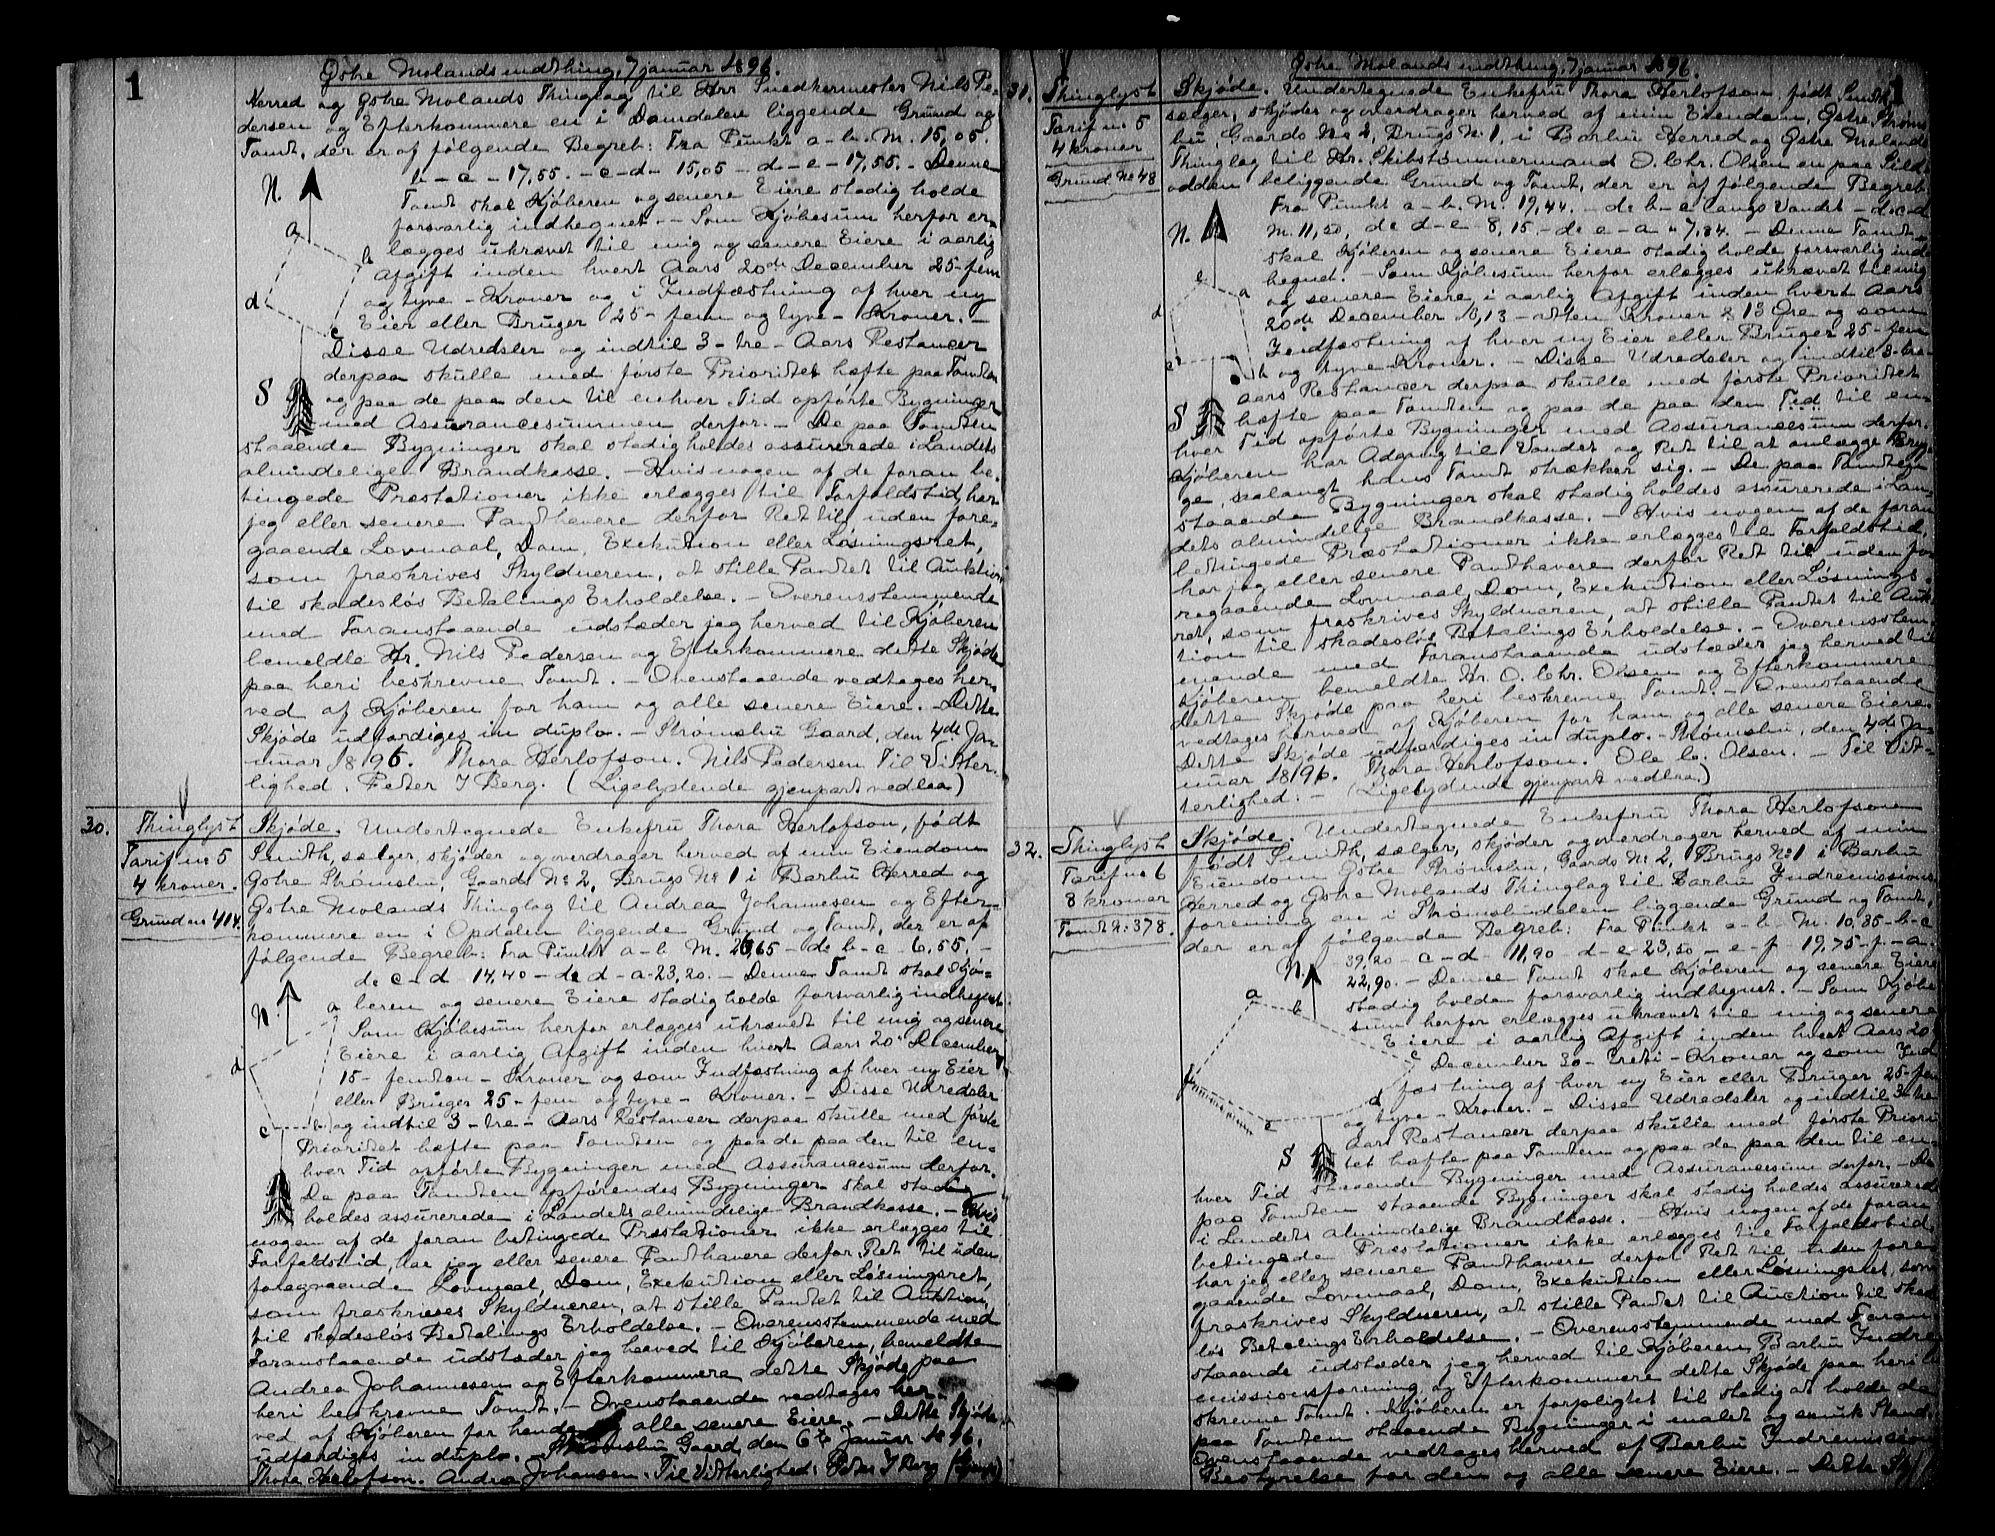 1
Østre Molands mdthing, 7 januar 1896.
Herred og Østre Molands Thinglag til Hrr Snedkermester Nils Pe-
dersen og Efterkommere en i Damdalen liggende Grund og
Tomt, der er af følgende Begreb: Fra Punkt a-b. M. 15,05.
b - c - 17,55. - c-d- 15,05 - d-e-17,55. - Denne
N.
Tomt skal Kjøberen og senere Eiere stadig holde
forsvarlig indhegnet. - Som Kjøbesum herfor er-
a
lægges ukrævet til mig og senere Eiere i aarlig
b
Afgift inden hvert Aars 20de December 25-fem
d
og tyve - Kroner og i Indfæstning af hver ny
c
Eier eller Bruger 25- fem og tyve - Kroner. -
Disse Udredsler og indtil 3-tre-Aars Restancer
derpaa skulle med første Prioritet hæfte paa Tomten
S
og paa de paa den til enhver Tid opførte Bygninger
med Assurancesummen derfor. - De paa Tomten
staaende Bygninger skal stadig holdes assurerede i Landets
almindelige Brandkasse. - Hvis nogen af de foran be-
tingede Præstationer ikke erlægges til Forfaldstid, har
jeg eller senere Panthavere derfor Ret til, uden fore-
gaaende Lovmaal, Dom, Exekution eller Løsningsret,
som fraskrives Skyldneren, at stille Pantet til Auktion
til skadesløs Betalings Erholdelse. - Overensstemmende
med Foranstaaende udstæder jeg herved til Kjøberen
bemeldte Hr. Nils Pedersen og Efterkommere dette Skjøde
paa heri beskrevne Tomt. - Ovenstaaende vedtages her-
ved af Kjøberen for ham og alle senere Eiere. - Dette
Skjøde udfærdiges in duplo. - Strømsbu Gaard, den 4de Ja-
nuar 1896. Thora Herlofson. Nils Pedersen Til Vitter-
lighed: Peder I Berg. (Ligelydende gjenpart vedlaa)
30.
Thinglyst
Tarif no 5
4 kroner.
Grund no 414.
Skjøde. Undertegnede Enkefru Thora Herlofson, født
Smith, sælger, skjøder og overdrager herved af min Eiendom
Østre Strømsbu, Gaards No 2, Brugs No 1 i Barbu Herred og
Østre Molands Thinglag til Andrea Johannesen og Efter-
kommere en i Opdalen liggende Grund og Tomt, der er af
følgende Begreb: Fra Punkt a-b M. 26,65 - de b-c 6,55. -
de c-d 14,40 - de d-a-23,20. - Denne Tomt skal Kjø-
N.
a
beren og senere Eiere stadig holde forsvarlig indhegnet.
Som Kjøbesum herfor erlægges ukrævet til mig og senere
d
Eiere i aarlig Afgift inden hvert Aars 20de December
15- femten - Kroner og som Indfæstning af hver ny Eier
eller Bruger 25- fem og tyve - Kroner. - Disse Udredsler
c
b
og indtil 3-tre- Aars Restancer derpaa skulle med første
Prioritet hæfte paa Tomten og paa de paa den til en-
hver Tid opførte Bygninger med Assurancesum derfor.
De paa Tomten opførendes Bygninger skal stadig
holdes assurerede i Landets almindelige Brandkasse. - Hvis
nogen af de foran betingede Præstationer ikke erlægges til
Forfaldstid, har jeg eller senere Panthavere derfor Ret til uden
foregaaende Lovmaal, Dom, Exekution eller Løsningsret,
som fraskrives Skyldneren, at stille Pantet til Auktion,
til skadesløs Betalings Erholdelse. - Overensstemmende med
Foranstaaende udstæder jeg herved til Kjøberen, bemeldte
Andrea Johannesen og Efterkommere dette Skjøde paa
heri beskrevne Tomt. - Ovenstaaende vedtages her-
ved af Kjøberen for hende og alle senere Eiere. - Dette Skjøde
udfærdiges in duplo. Strømsbu Gaard, den 6te Januar 1896.
Thora Herlofson. Andrea Johansen. Til Vitterlighed: Peder I Berg
1
Østre Molands mdthing, 7 januar 1896.
31.
Thinglyst
Tarif no 5
4 kroner
Grund No 48
Skjøde. Undertegnede Enkefru Thora Herlofson, født Smith,
sælger, skjøder og overdrager herved af min Eiendom, Østre Strøms-
bu, Gaards No 2, Brugs No 1, i Barbu Herred og Østre Molands
Thinglag til Hr. Skibstømmermand O. Chr. Olsen en paa Sild-
odden beliggende Grund og Tomt, der er af følgende Begreb:
Fra Punkt a-b. M. 19,44. - de b-c langs Vandet - de c-d
N.
M. 11,50, de d-e- 8,15. - de e-a - 7,84. - Denne Tomt
skal Kjøberen og senere Eiere stadig holde forsvarlig ind-
hegnet. - Som Kjøbesum herfor erlægges ukrævet til mig
e
a
og senere Eiere i aarlig Afgift inden hvert Aars
d
20de December 18,13 - atten Kroner & 13 Øre og som
Indfæstning af hver ny Eier eller Bruger 25- fem
c
b
og tyve - Kroner. - Disse Udredsler og indtil 3-tre-
Aars Restancer derpaa skulle med første Prioritet
S
hæfte paa Tomten og paa de paa den Tid til en-
hver Tid opførte Bygninger med Assurancesum derfor.
Kjøberen har Adgang til Vandet og Ret til at anlægge Bryg-
ge, saalangt hans Tomt strækker sig. - De paa Tomten
staaende Bygninger skal stadig holdes assurerede i Lan-
dets almindelige Brandkasse. - Hvis nogen af de foran
betingede Præstationer ikke erlægges til Forfaldstid,
har jeg eller senere Panthavere derfor Ret til uden fo-
regaaende Lovmaal, Dom, Exekution eller Løsnings-
ret, som fraskrives Skyldneren, at stille Pantet til Auk-
tion til skadesløs Betalings Erholdelse. - Overensstem-
mende med Foranstaaende udstæder jeg herved til
Kjøberen bemeldte Hr. O. Chr. Olsen og Efterkommere
dette Skjøde paa heri beskrevne Tomt. - Ovenstaaende
vedtages herved af Kjøberen for ham og alle senere Eiere.
Dette Skjøde udfærdiges in duplo. - Strømsbu, den 4de Ja-
nuar 1896. Thora Herlofson. Ole C. Olsen. - Til Vit-
terlighed: - (Ligelydende gjenpart vedlaa)
32.
Thinglyst
Tarif no 6
8 kroner
Tomt No: 378.
Skjøde. Undertegnede Enkefru Thora Herlofson
født Smith, sælger, skjøder og overdrager herved af min
Eiendom Østre Strømsbu, Gaards No 2, Brugs No 1 i Barbu
Herred og Østre Molands Thinglag til Barbu Indremissions-
forening en i Strømsbudalen liggende Grund og Tomt,
der er af følgende Begreb: Fra Punkt a-b- M. 10,35- b-c
39,20 - c-d- 11,90 - d-e 23,50 - e-f 19,75-f-a-
N.
22,90. - Denne Tomt skal Kjøberen og senere Eiere
a
b
stadig holde forsvarlig indhegnet. - Som Kjøbe-
sum herfor erlægges ukrævet til mig og senere
Eiere i aarlig Afgift inden hvert Aars 20de
c
December 30- treti - Kroner og som Ind-
f
fæstning af hver ny Eier eller Bruger 25-fem
d
og tyve - Kroner. - Disse Udredsler og indtil 3-tre
e
Aars Restancer derpaa skulle med første Priori-
S
tet hæfte paa Tomten og paa de paa den til en-
hver Tid staaende Bygninger med Assurancesum derfor. - De
paa Tomten staaende Bygninger skal stadig holdes assurerede
i Landets almindelige Brandkasse. - Hvis nogen af de foran
betingede Præstationer ikke erlægges til Forfaldstid,
har jeg eller senere Panthavere derfor Ret til uden fore-
gaaende Lovmaal, Dom, Exekution eller Løsningsret, som
fraskrives Skyldneren, at stille Pantet til Auction til skades-
løs Betalings Erholdelse. - Overensstemmende med Foran-
staaende udstæder jeg herved til Kjøberen Barbu Indre-
missionsforening og Efterkommere dette Skjøde paa heri be-
skrevne Tomt. - Kjøberen er forpligtet til stadig at holde de
paa Tomten staaende Bygninger i malet og smuk Stand.
Ovenstaaende vedtages herved af Barbu Indremissions
Bestyrelse for den og alle senere Eiere. - Dette Skj